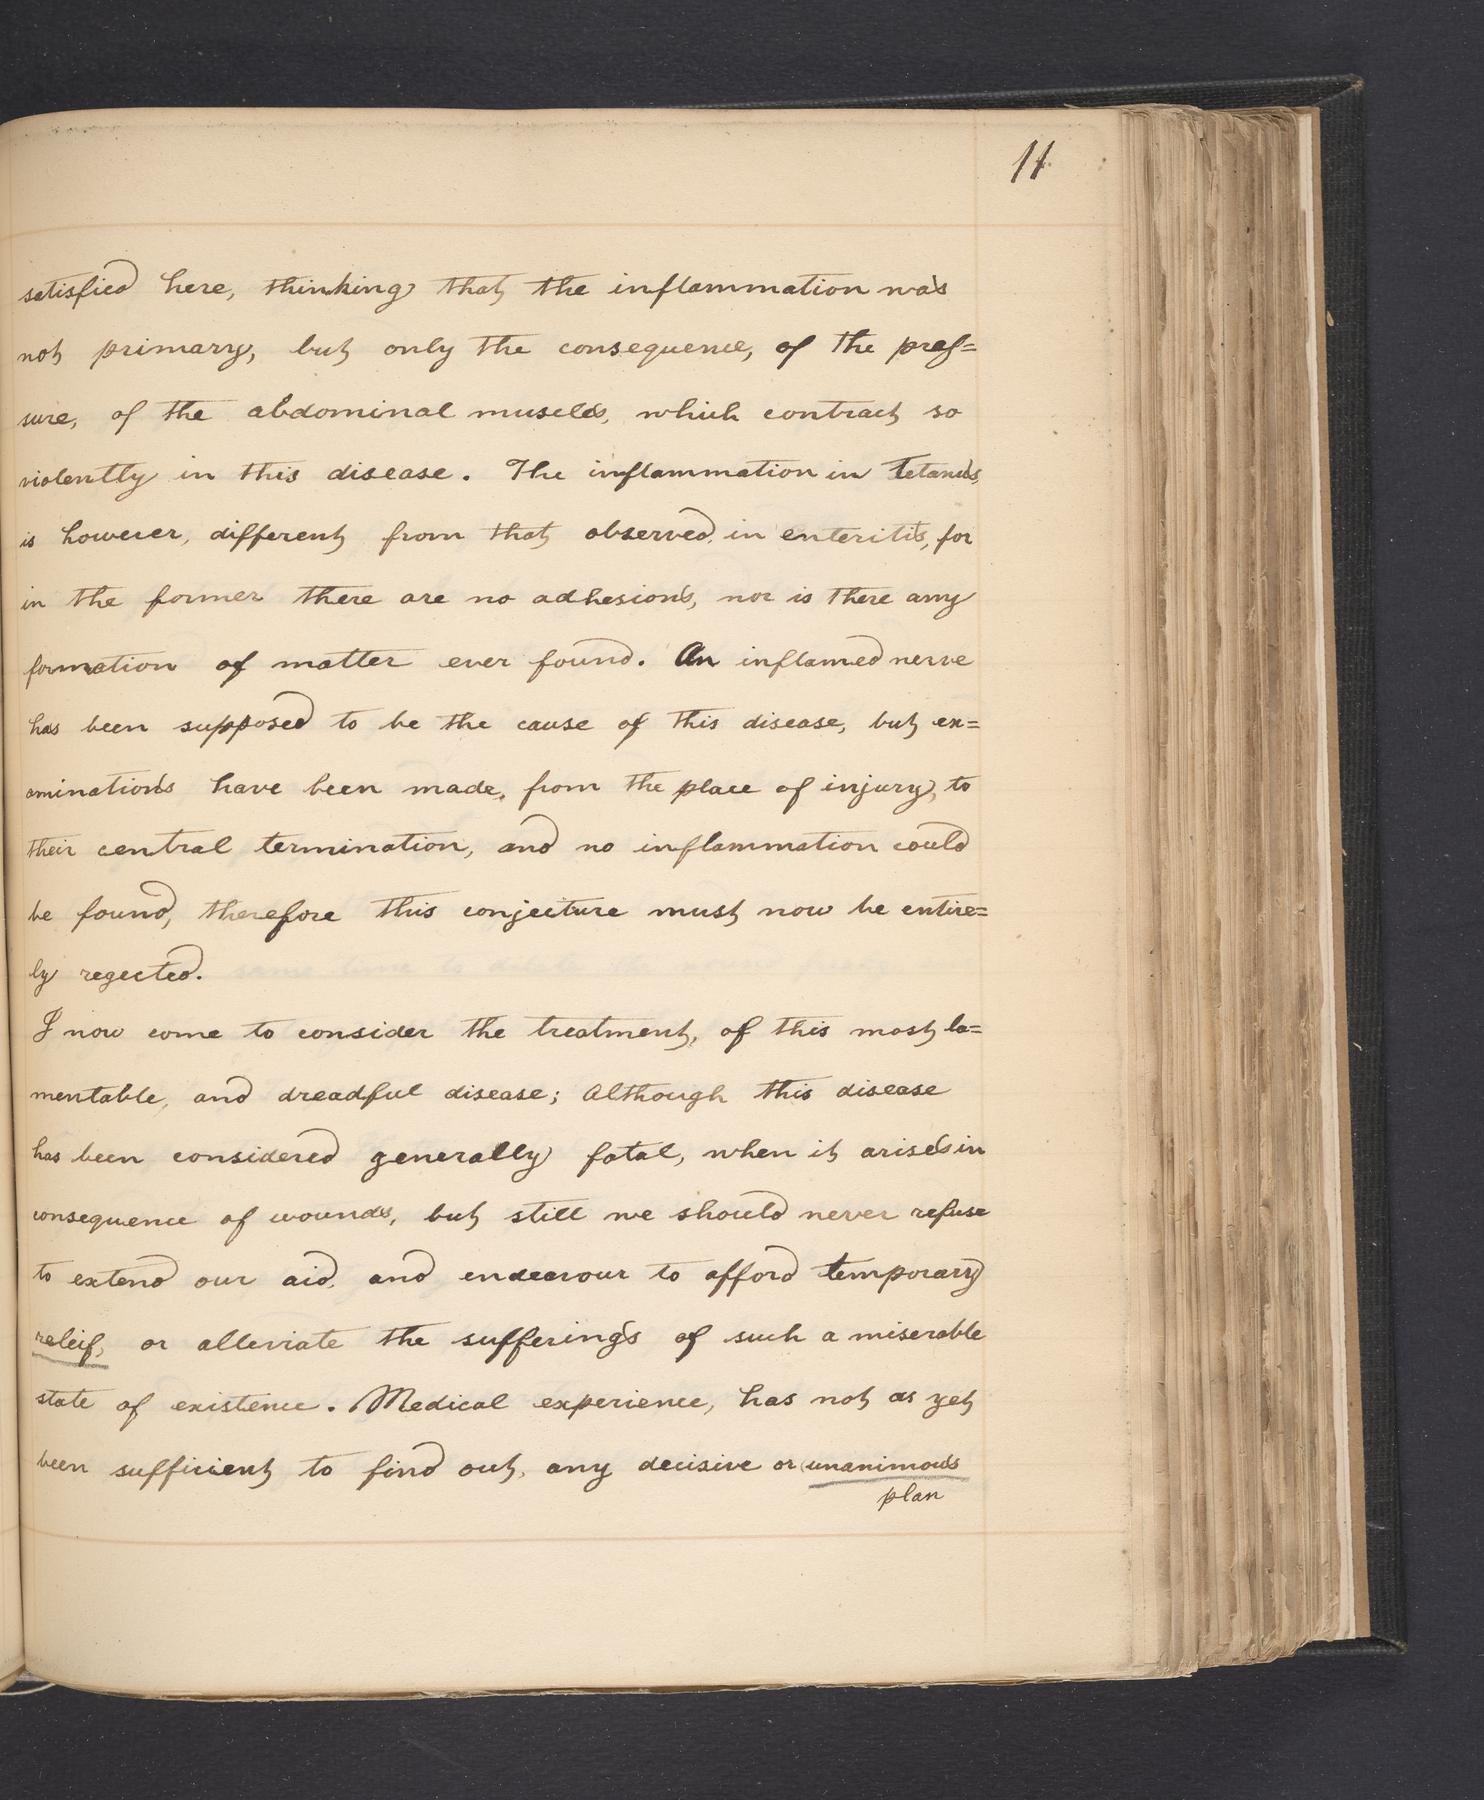 11
satisfied here, thinking that the inflammation was
not primary, but only the consequence, of the pres=
sure, of the abdominal muscles, which contract so
violently in this disease. The inflammation in Tetanus,
is however, different from that observed, in enteritis, for
in the former there are no adhesions, nor is there any
formation of matter ever found. An inflamed nerve
has been supposed to be the cause of this disease, but ex=
aminations have been made, from the place of injury, to
their central termination, and no inflammation could
be found, therefore this conjecture must now be entire=
ly regected.
I now come to consider the treatment, of this most la=
mentable, and dreadful disease; Although this disease
has been considered generally fatal, when it arises in
consequence of wounds, but still we should never refuse
to extend our aid, and endeavour to afford temporary
releif, or alleviate the sufferings of such a miserable
state of existence. Medical experience, has not as yet
been sufficient to find out, any decisive or unanimous
plan